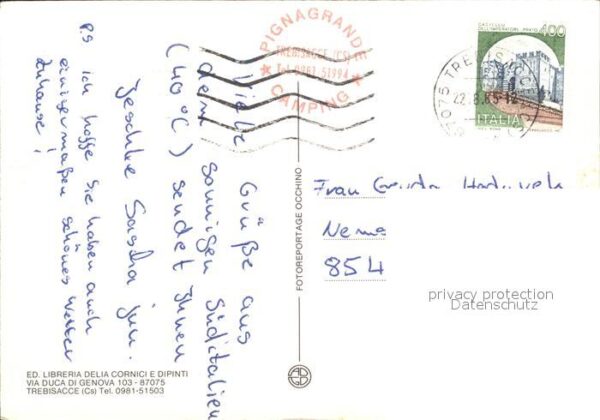 Viele Grüße aus
dem sonnigen Süditalien
(40°C) sendet Ihnen
Jeschke Sascha jun.
P.S Ich hoffe Sie haben auch
einigermaßen schönes Wetter
zuhause!
PIGNAGRANDE
TREBISACCE (CS)
Tel. 0981-51994
CAMPING
CASTELLO
DELL'IMPERATORE, PRATO
400
ITALIA
87075 TREBISACCE
22.8.85
Frau
Nema
854
privacy protection
Datenschutz
FOTOREPORTAGE OCCHINO
ED. LIBRERIA DELIA CORNICI E DIPINTI
VIA DUCA DI GENOVA 103 - 87075
TREBISACCE (Cs) Tel. 0981-51503